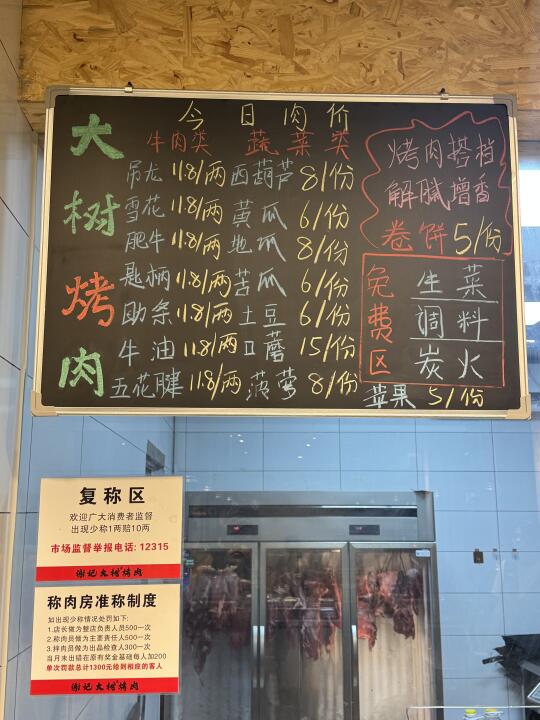 今日肉价
大树烤肉
牛肉类 蔬菜类
吊龙 11.8/两 西葫芦 8/份
雪花 11.8/两 黄瓜 6/份
肥牛 11.8/两 地瓜 8/份
匙柄 11.8/两 苦瓜 6/份
肋条 11.8/两 土豆 6/份
牛油 11.8/两 口蘑 15/份
五花腱 11.8/两 菠萝 8/份
烤肉搭档
解腻增香
卷饼 5/份
免费区
生菜
调料
炭火
苹果 5/份
复称区
欢迎广大消费者监督
出现少称1两赔10两
市场监督举报电话: 12315
谢记大树烤肉
称肉房准称制度
如出现少称情况处罚如下:
1.店长做为整店负责人员500一次
2.称肉员做为主要责任人500一次
3.拌肉员做为出品检查人300一次
当月未出错在原有奖金基础每人加200
单次罚款总计1300元给到相应的客人
谢记大树烤肉